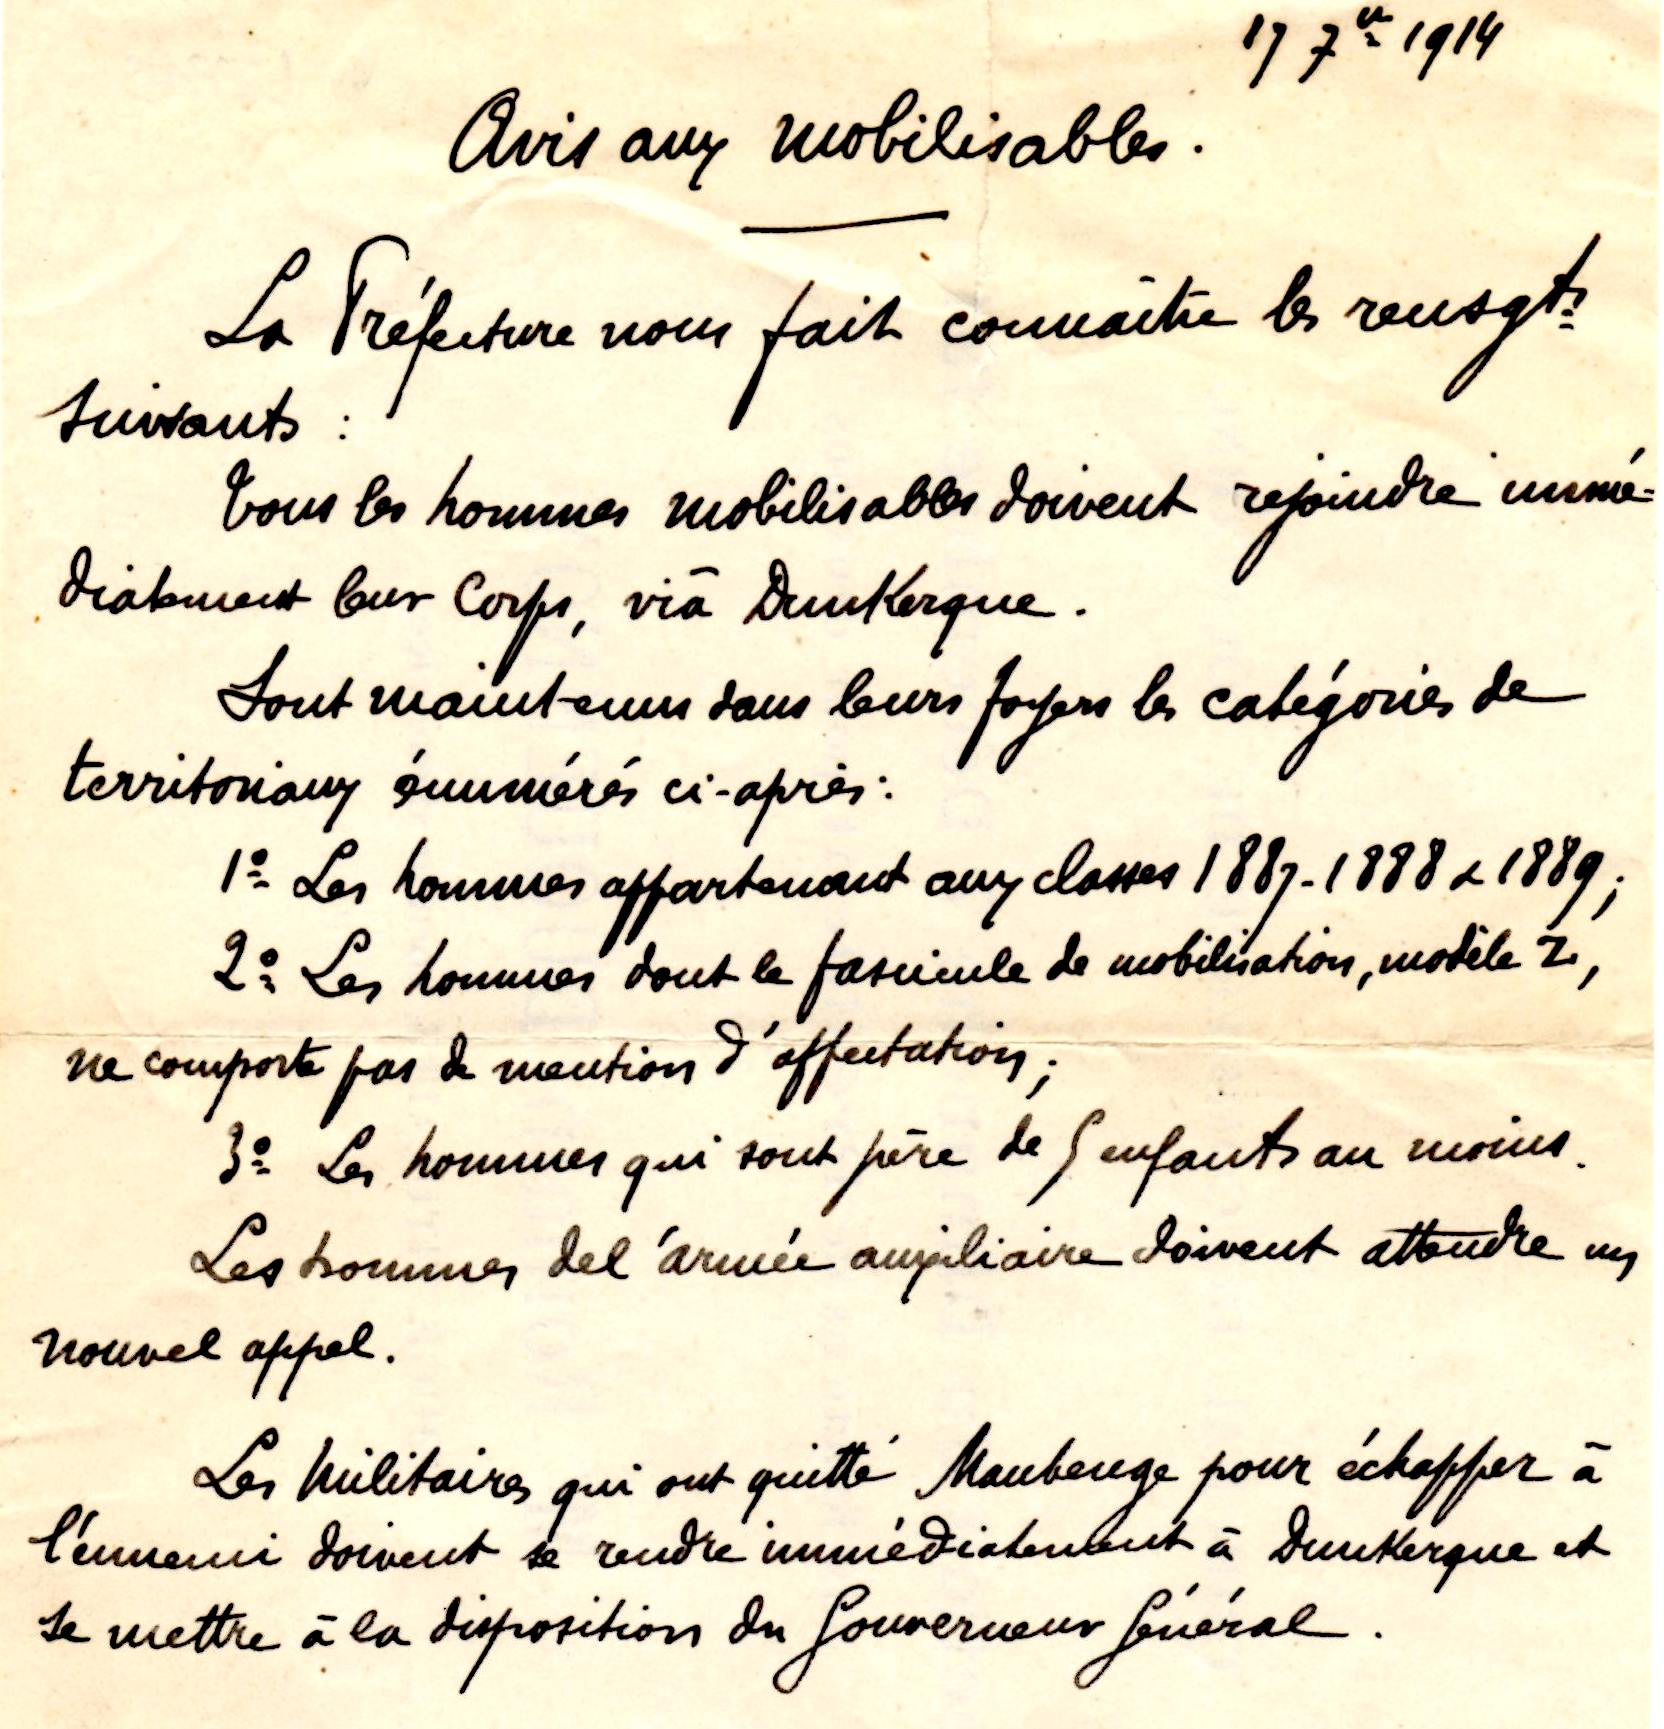 17 7bre 1914
Avis aux mobilisables.
La Préfecture nous fait connaître les rensgts
suivants :
Tous les hommes mobilisables doivent rejoindre immé-
diatement leur Corps, viâ DunKerque.
Sont maintenus dans leurs foyers les catégories de
territoriaux énumérés ci-après :
1º Les hommes appartenant aux classes 1887-1888 & 1889 ;
2º Les hommes dont le fascicule de mobilisation, modèle Z,
ne comporte pas de mention d'affectation ;
3º Les hommes qui sont père de 5 enfants au moins.
Les hommes de l'armée auxiliaire doivent attendre un
nouvel appel.
Les Militaires qui ont quitté Maubeuge pour échapper à
l'ennemi doivent se rendre immédiatement à DunKerque et
se mettre à la disposition du Gouverneur Général.